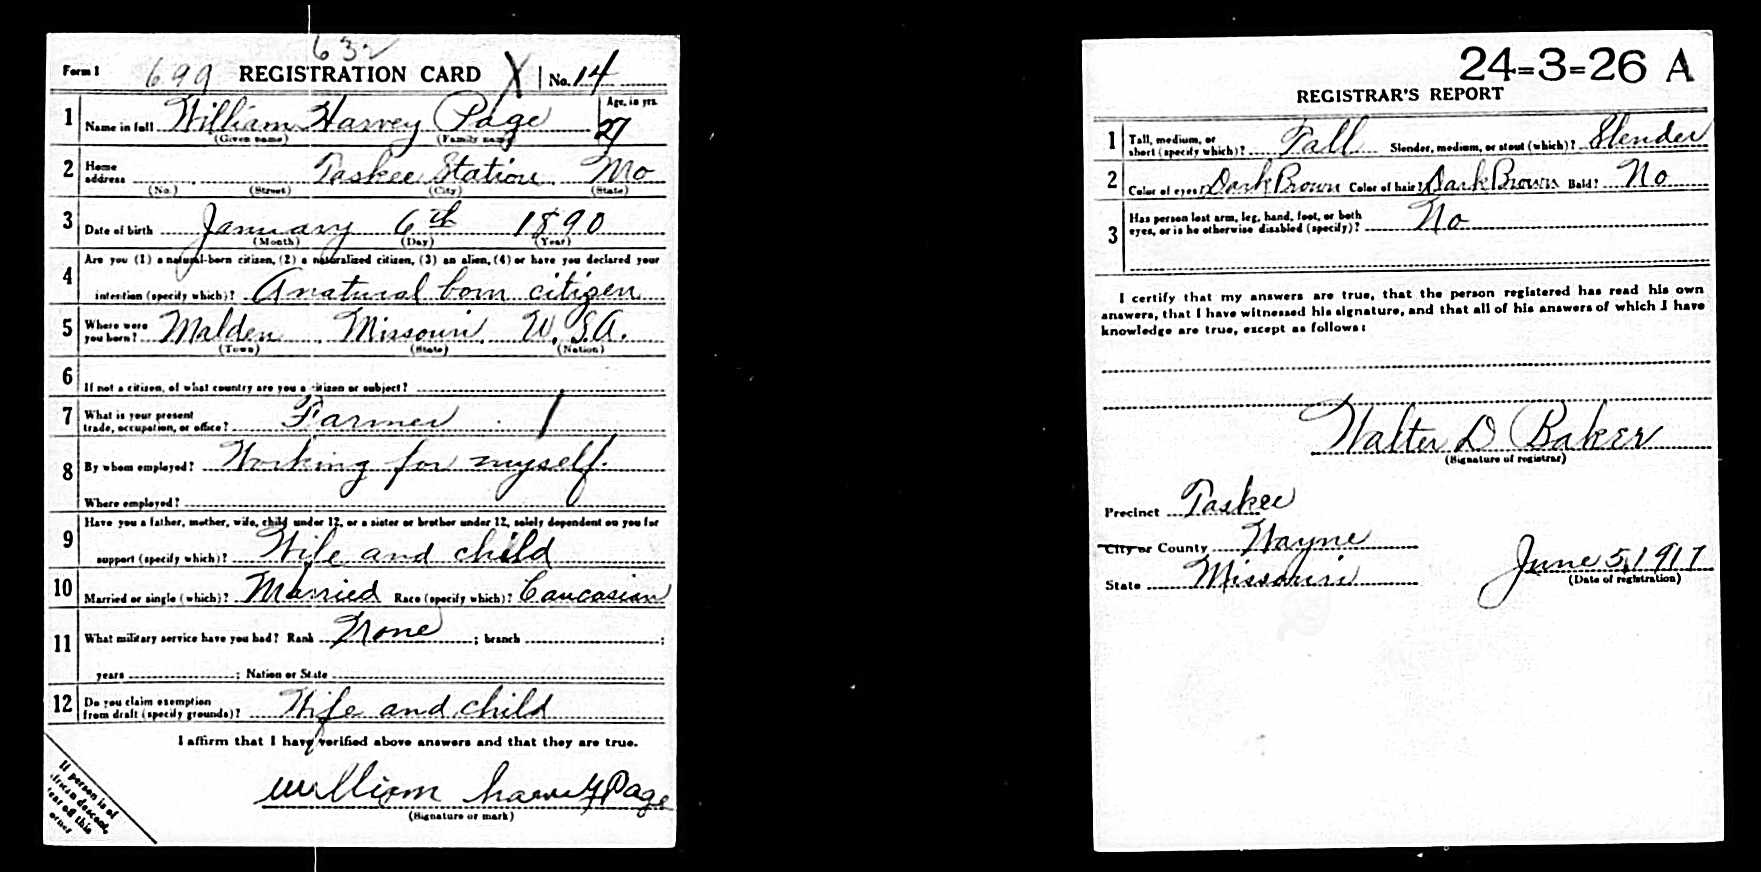 632
Form 1 699 REGISTRATION CARD X No. 14
1 Name in full William Harvey Page Age, in yrs. 27
(Given name) (Family name)
2 Home address Taskee Station Mo
(No.) (Street) (City) (State)
3 Date of birth January 6th 1890
(Month) (Day) (Year)
4 Are you (1) a natural-born citizen, (2) a naturalized citizen, (3) an alien, (4) or have you declared your
intention (specify which)? A natural born citizen
5 Where were you born? Malden Missouri U.S.A.
(Town) (State) (Nation)
6 If not a citizen, of what country are you a citizen or subject?
7 What is your present trade, occupation, or office? Farmer
8 By whom employed? Working for myself.
Where employed?
9 Have you a father, mother, wife, child under 12, or a sister or brother under 12, solely dependent on you for
support (specify which)? Wife and child
10 Married or single (which)? Married Race (specify which)? Caucasian
11 What military service have you had? Rank None ; branch ;
years ; Nation or State
12 Do you claim exemption from draft (specify grounds)? Wife and child
I affirm that I have verified above answers and that they are true.
William harvey Page
(Signature or mark)
If person is of
African descent,
tear off this
corner
24=3=26 A
REGISTRAR'S REPORT
1 Tall, medium, or short (specify which)? Tall Slender, medium, or stout (which)? Slender
2 Color of eyes? Dark Brown Color of hair? Dark Brown Bald? No
3 Has person lost arm, leg, hand, foot, or both eyes, or is he otherwise disabled (specify)? No
I certify that my answers are true, that the person registered has read his own
answers, that I have witnessed his signature, and that all of his answers of which I have
knowledge are true, except as follows:
Walter D Baker
(Signature of registrar)
Precinct Taskee
City or County Wayne
State Missouri
June 5, 1917
(Date of registration)